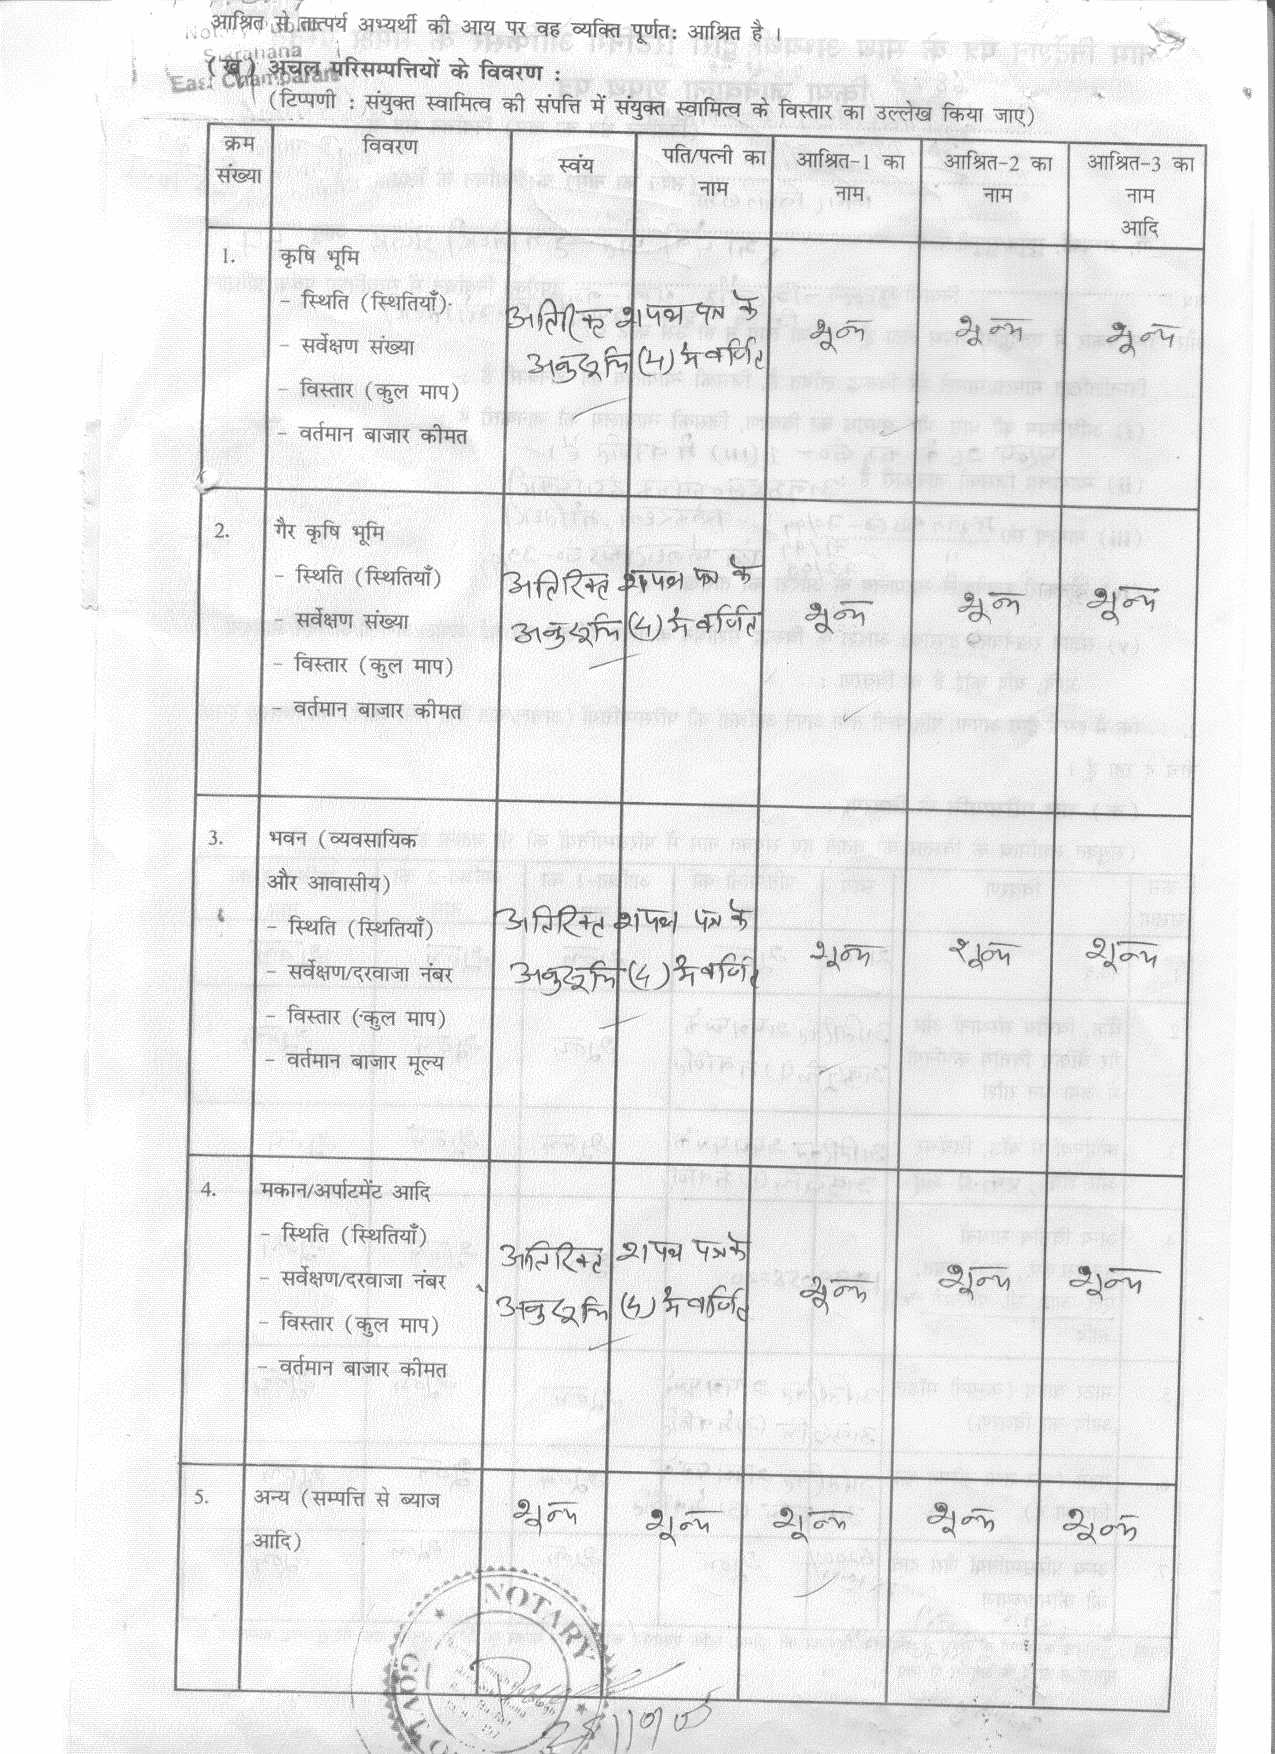 आश्रित से तात्पर्य अभ्यर्थी की आय पर वह व्यक्ति पूर्णत: आश्रित है ।
(ख) अचल परिसम्पत्तियों के विवरण :
East Champaran
(टिप्पणी : संयुक्त स्वामित्व की संपत्ति में संयुक्त स्वामित्व के विस्तार का उल्लेख किया जाए)
क्रम संख्या
विवरण
स्वंय
पति/पत्नी का नाम
आश्रित-1 का नाम
आश्रित-2 का नाम
आश्रित-3 का नाम आदि
1.
कृषि भूमि
- स्थिति (स्थितियाँ)
- सर्वेक्षण संख्या
- विस्तार (कुल माप)
- वर्तमान बाजार कीमत
अतिरिक्त शपथ पत्र के
अनुसूचि (4) में वर्णित
शून्य शून्य शून्य
2.
गैर कृषि भूमि
- स्थिति (स्थितियाँ)
- सर्वेक्षण संख्या
- विस्तार (कुल माप)
- वर्तमान बाजार कीमत
अतिरिक्त शपथ पत्र के
अनुसूचि में वर्णित
शून्य शून्य शून्य
3.
भवन (व्यवसायिक
और आवासीय)
- स्थिति (स्थितियाँ)
- सर्वेक्षण/दरवाजा नंबर
- विस्तार (कुल माप)
- वर्तमान बाजार मूल्य
अतिरिक्त शपथ पत्र के
अनुसूचि में वर्णित
शून्य शून्य शून्य
4.
मकान/अर्पाटमेंट आदि
- स्थिति (स्थितियाँ)
- सर्वेक्षण/दरवाजा नंबर
- विस्तार (कुल माप)
- वर्तमान बाजार कीमत
अतिरिक्त शपथ पत्र के
अनुसूचि में वर्णित
शून्य शून्य शून्य
5.
अन्य (सम्पत्ति से ब्याज
आदि)
शून्य शून्य शून्य शून्य शून्य
NOTARY
GOVT